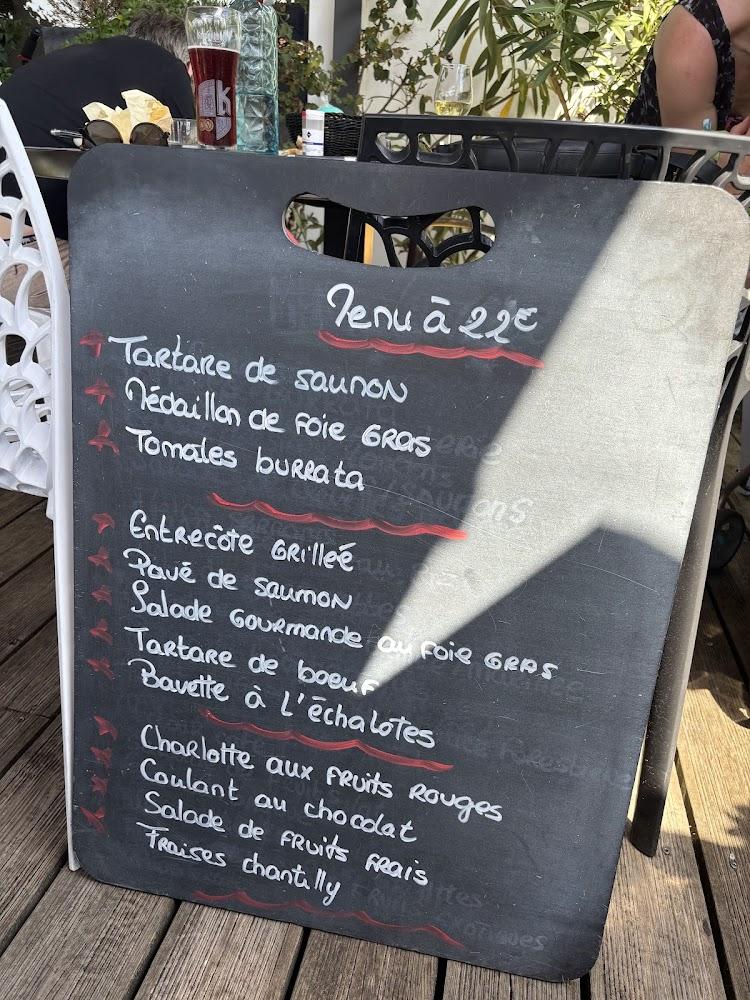 Menu à 22€
Tartare de saumon
Médaillon de foie gras
Tomates burrata
Entrecôte grilleé
Pavé de saumon
Salade gourmande au foie gras
Tartare de boeuf
Bavette à l'échalotes
Charlotte aux fruits rouges
Coulant au chocolat
Salade de fruits frais
Fraises chantilly